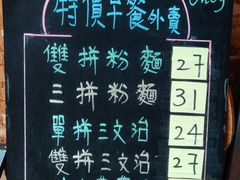 特價早餐外賣
雙拼粉麵 27
三拼粉麵 31
單拼三文治 24
雙拼三文治 27